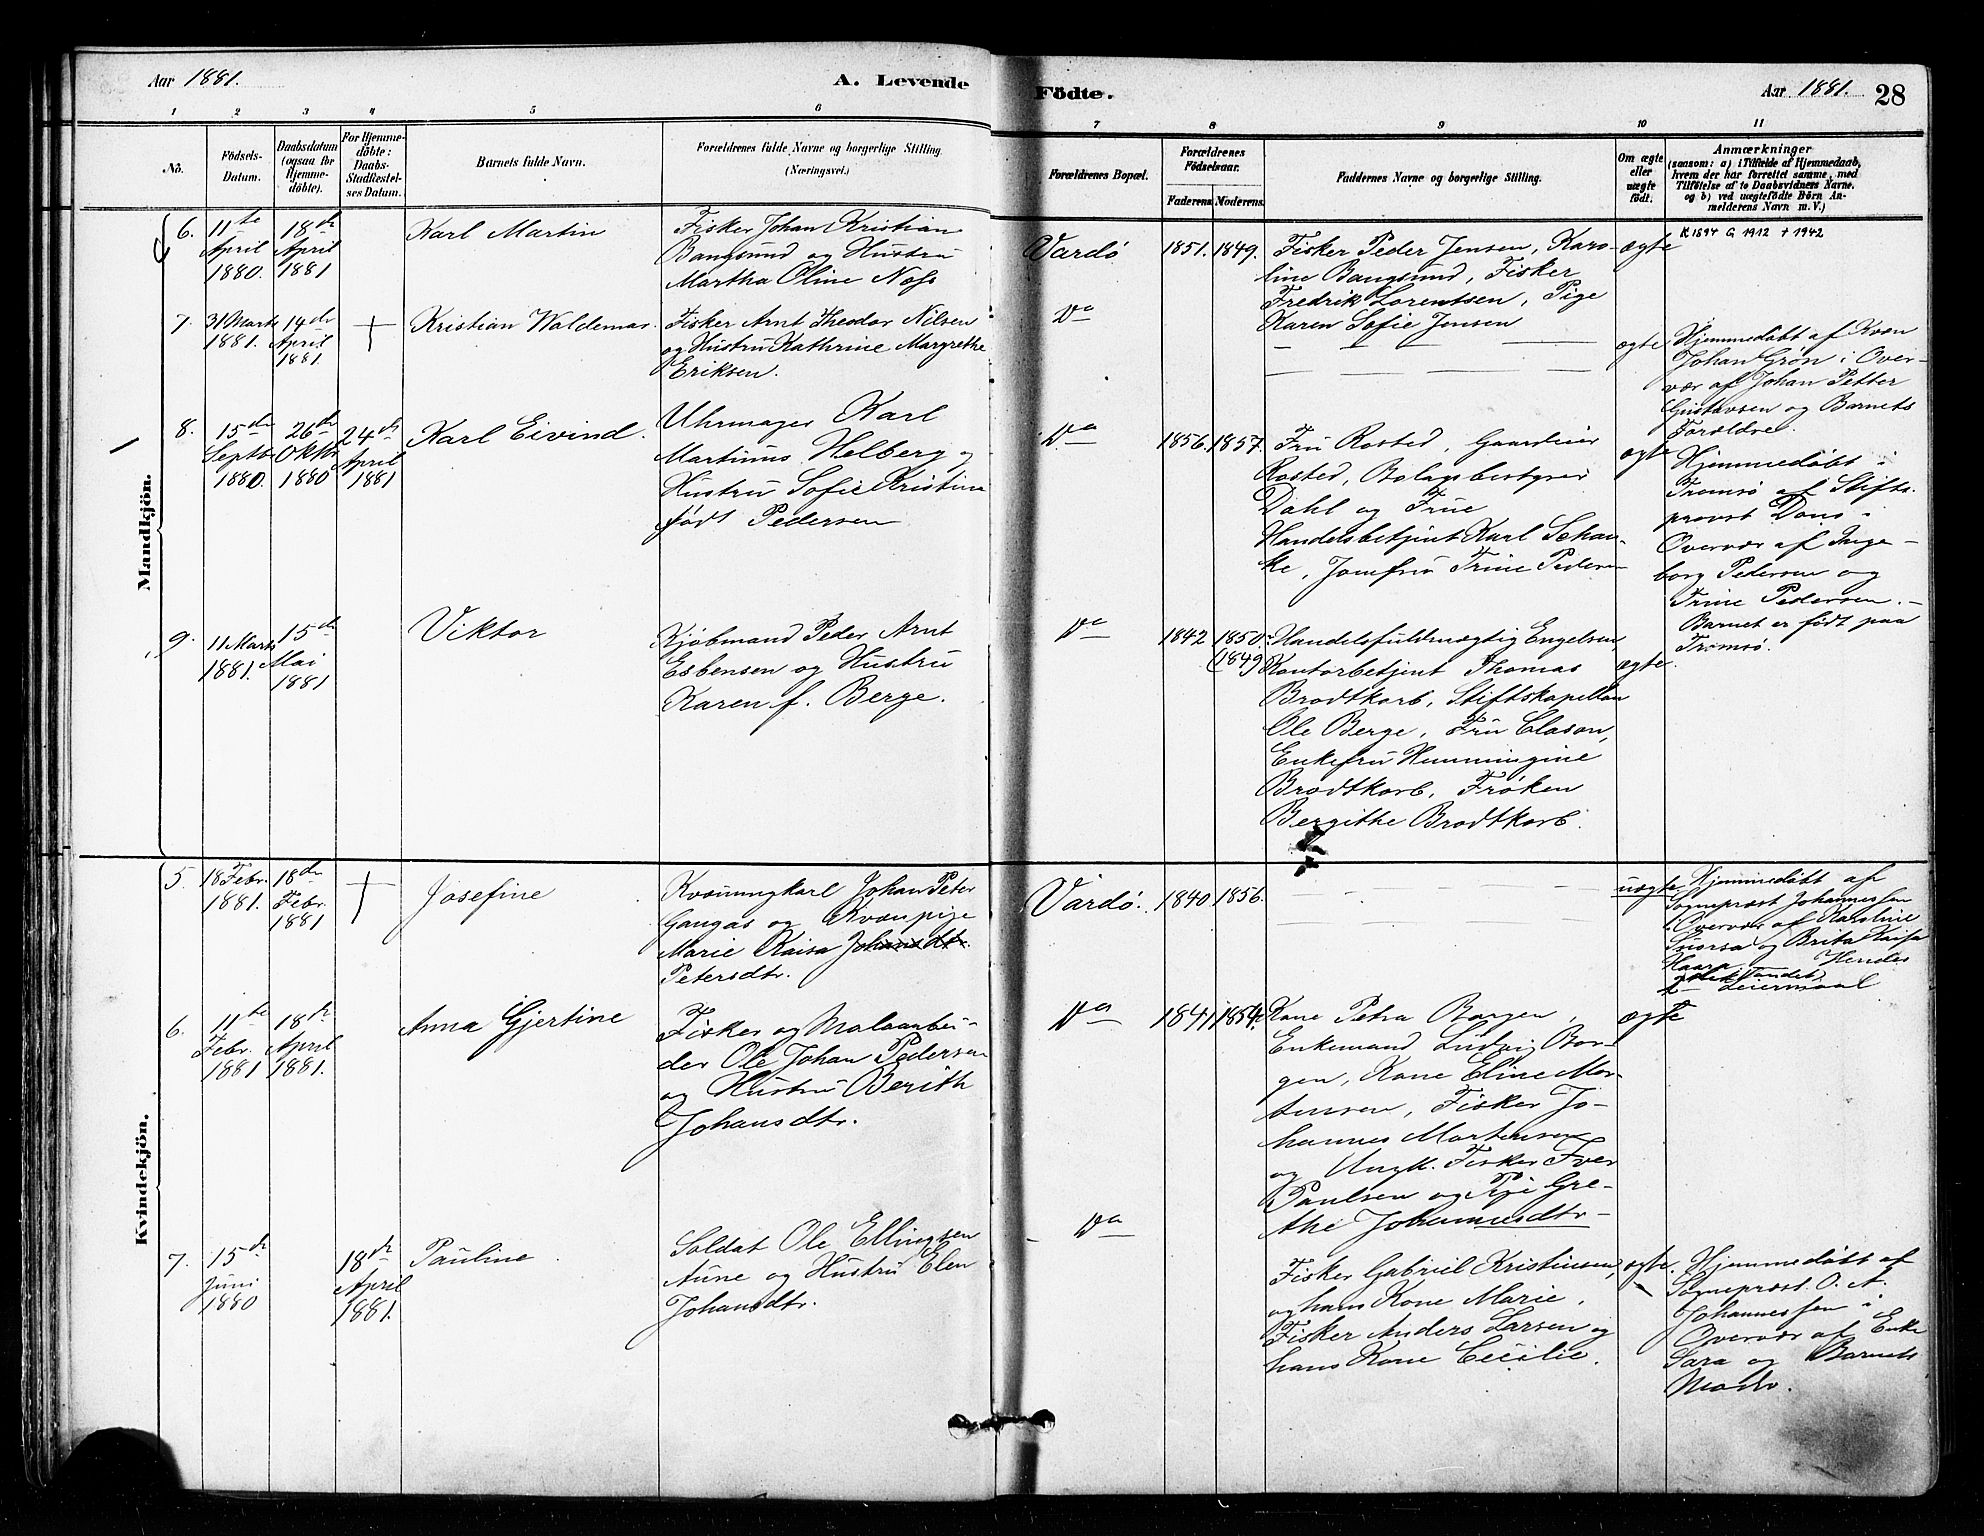 Aar 1881.
A. Levende
Födte.
Aar 1881.
28
1 2 3 4 5 6 7 8 9 10 11
No.
Födsels-
Datum.
Daabsdatum
(ogsaa for
Hjemme-
döbte).
For Hjemme-
döbte:
Daabs-
Stadfæstel-
ses Datum.
Barnets fulde Navn.
Forældrenes fulde Navne og borgerlige Stilling.
(Næringsvei.)
Forældrenes Bopæl.
Forældrenes
Födselsaar.
Faderens. Moderens.
Faddernes Navne og borgerlige Stilling.
Om ægte
eller
uægte
födt.
Anmærkninger
(saasom: a) i Tilfælde af Hjemmedaab,
hvem der har forrettet samme, med
Tilföielse af to Daabsvidners Navne,
og b) ved uægtefödte Börn An-
melderens Navn m. V.)
Mandkjön.
6.
11te
April
1880.
18de
April
1881
Karl Martin
Fisker Johan Kristian
Bangsund og Hustru
Martha Oline Noss
Vardø
1851. 1849.
Fisker Peder Jensen, Karo-
line Bangsund, Fisker
Fredrik Lorentsen, Pige
Karen Sofie Jensen
ægte
K 1894 G 1912 † 1942
7.
31 Marts
1881.
14de
April
1881
†
Kristian Waldemar.
Fisker Arnt Theodor Nilsen
og Hustru Kathrine Margrethe
Eriksen.
Do
ægte.
Hjemmedøbt af Kvæn
Johan Grøn i Over-
vær af Johan Petter
Gustavsen og Barnets
Forældre.
8.
15de
Septb
1880.
26de
Oktbr
1880
24de
April
1881
Karl Eivind.
Uhrmager Karl
Martinus Helberg og
Hustru Sofie Kristine
født Pedersen
Do
1856. 1857.
Fru Rosted, Gaardeier
Rosted, Bolagsbestyrer
Dahl og Frue
Handelsbetjent Karl Schan-
ke, Jomfru Trine Peder-
ægte
Hjemmedøbt i
Tromsø af Stifts-
provst Dons i
Overvær af Inge-
borg Pedersen og
Trine Pedersen. -
Barnet er født paa
Tromsø.
9.
11 Marts
1881.
15de
Mai
1881
Viktor
Kjøbmand Peder Arnt
Esbensen og Hustru
Karen f. Berge.
Do
1842 1850.
(1849)
Handelsfuldmægtig Engelsen,
Kontorbetjent Thomas
Brodtkorb, Stiftskapellan
Ole Berge, Fru Clason,
Enkefru Hemmingine
Brodtkorb, Frøken
Bergithe Brodtkorb.
ægte.
Kvindekjön.
5.
18 Febr.
1881.
18de
Febr.
1881
†
Josefine
Kvænungkarl Johan Peter
Gangas og Kvænpige
Marie Kaisa Johansdtr.
Petersdtr.
Vardø.
1840 1856.
uægte
Hjemmedøbt af
Sognepræst Johannessen
i Overvær af Karoline
og Brita Kaisa
Haara. Hendes
Leiermaal
6.
11te
Febr.
1881
18de
April
1881.
Anna Gjertine
Fisker og Malaarbei-
der Ole Johan Pedersen
og Hustru Berith
Johansdtr.
Do
1841 1854.
Kone Petra Borgen,
Enkemand Ludvig Bor-
gen, Kone Eline Mor-
tensen, Fisker Jo-
hannes Mortensen
og Ungk. Fisker Iver
Paulsen og Pige Gre-
the Johannesdtr-
ægte
7.
15de
Juni
1880
18de
April
1881.
Pauline
Soldat Ole Ellingsen
Aune og Hustru Elen
Johansdtr.
Do
Fisker Gabriel Kristensen,
og hans Kone Marie,
Fisker Anders Larsen og
hans Kone Cecilie.
ægte.
Hjemmedøbt af
Sognepræst O. A.
Johannessen i
Overvær af Enke
Sara og Barnets
Moder.